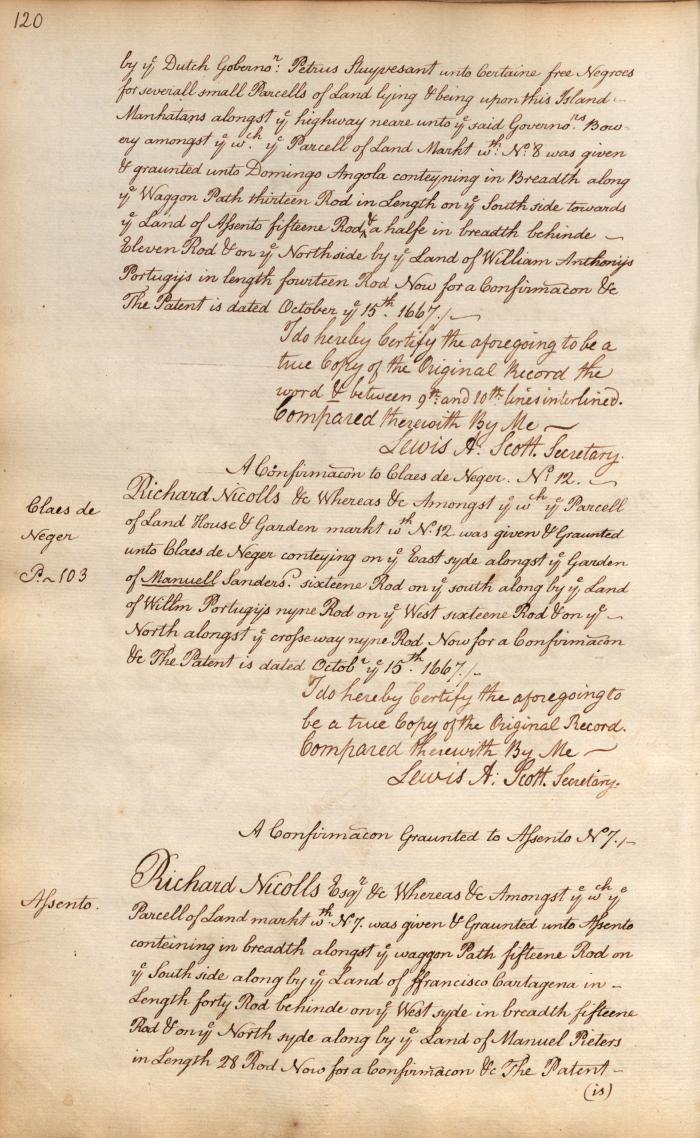 120
by yᵉ Dutch Gobernoʳ: Petrus Stuyvesant unto Certaine free Negroes
for severall small Parcells of Land lying & being upon this Island –
Manhatans alongst yᵉ highway neare unto yᵉ said Governoʳˢ Bow-
ery amongst yᵉ wᶜʰ yᵉ Parcell of Land Markt wᵗʰ: Nᵒ 8 was given
& graunted unto Domingo Angola conteyning in Breadth along
yᵉ Waggon Path thirteen Rod in Length on yᵉ South side towards
yᵉ Land of Assento fifteene Rod & a halfe in breadth behinde –
Eleven Rod & on yᵉ North side by yᵉ Land of William Anthonijs
Portugijs in length fourteen Rod Now for a Confirmacon &c
The Patent is dated October yᵉ 15ᵗʰ. 1667./–
I do hereby Certify the aforegoing to be a
true Copy of the Original Record the
word & between 9ᵗʰ. and 10ᵗʰ. lines interlined.
Compared therewith By Me –
Lewis A: Scott. Secretary.
A Confirmacon to Claes de Neger. Nᵒ 12. –
Claes de
Neger
P. ~ 103
Richard Nicolls &c Whereas &c Amongst yᵉ wᶜʰ yᵉ Parcell
of Land House & Garden markt wᵗʰ Nᵒ: 12 was given & Graunted
unto Claes de Neger conteying on yᵉ East syde alongst yᵉ Garden
of Manuell Sanders. sixteene Rod on yᵉ south along by yᵉ Land
of Willm Portugijs nyne Rod on yᵉ West sixteene Rod & on yᵉ –
North alongst yᵉ crosse way nyne Rod Now for a Confirmacon
&c The Patent is dated Octobʳ yᵉ 15ᵗʰ. 1667./–
I do hereby Certify the aforegoing to
be a true Copy of the Original Record.
Compared therewith By Me –
Lewis A: Scott. Secretary.
A Confirmacon Graunted to Assento Nᵒ 7./–
Assento.
Richard Nicolls Esqʳ &c Whereas &c Amongst yᵉ wᶜʰ yᵉ
Parcell of Land markt wᵗʰ. Nᵒ 7. was given & Graunted unto Assento
conteining in breadth alongst yᵉ waggon Path fifteene Rod on
yᵉ South side along by yᵉ Land of ffrancisco Cartagena in –
Length forty Rod behinde on yᵉ West syde in breadth fifteene
Rod & on yᵉ North syde along by yᵉ Land of Manuel Pieters
in Length 28 Rod Now for a Confirmacon &c The Patent –
(is)